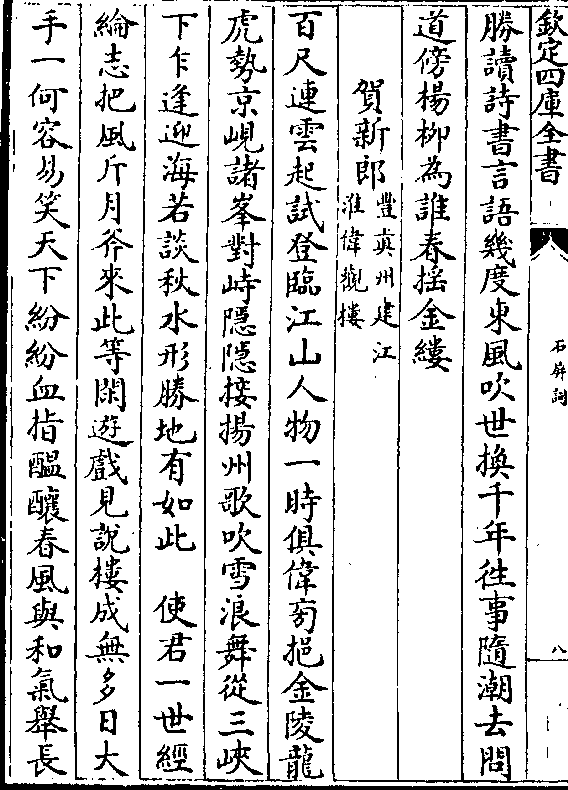 欽定四庫全書
石屏詞
八
勝讀詩書言語幾度東風吹世換千年徃事隨潮去問
道傍楊柳為誰春揺金縷
賀新郎
豐真州建江
淮偉觀樓
百尺連雲起試登臨江山人物一時俱偉旁挹金陵龍
虎勢京峴諸峯對峙隠隠接揚州歌吹雪浪舞從三峽
下乍逢迎海若談秋水形勝地有如此　使君一世經
綸志把風斤月斧來此等閑遊戲見說樓成無多日大
手一何容易笑天下紛紛血指醖釀春風與和氣舉長